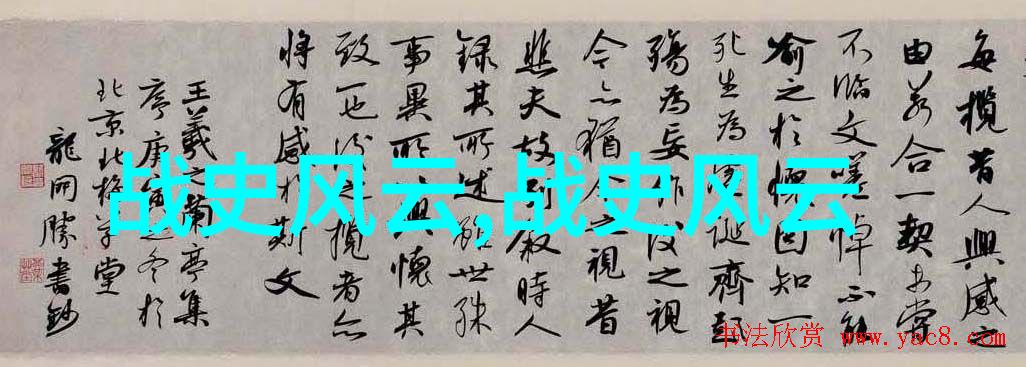 每攬昔人興感之
由若合一契未嘗
不臨文嗟悼不能
喻之於懷固知一
死生為虛誕齊彭
殤為妄作後之視
今亦猶今之視昔
悲夫故列敘時人
錄其所述雖世殊
事異所以興懷其
致一也後之攬者亦
將有感於斯文
王羲之蘭亭集
序庚寅之冬於
北京北梅草堂
龍開勝書鈔
战史风云,战史风云
书法欣赏 www.yac8.com